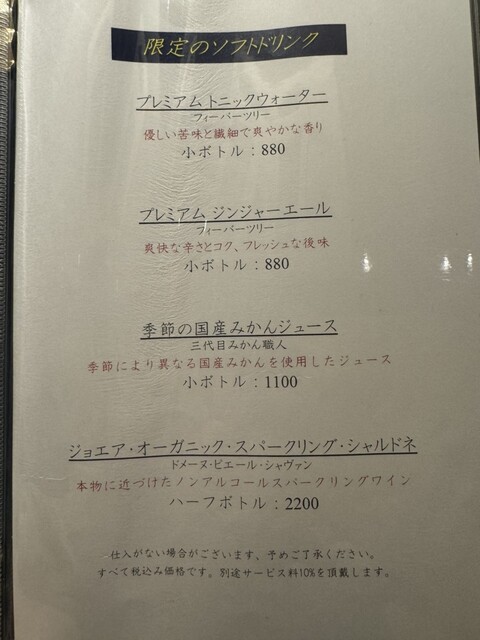 限定のソフトドリンク
プレミアムトニックウォーター
フィーバーツリー
優しい苦味と繊細で爽やかな香り
小ボトル：880
プレミアム ジンジャーエール
フィーバーツリー
爽快な辛さとコク、フレッシュな後味
小ボトル：880
季節の国産みかんジュース
三代目みかん職人
季節により異なる国産みかんを使用したジュース
小ボトル：1100
ジョエア・オーガニック・スパークリング・シャルドネ
ドメーヌ・ピエール・シャヴァン
本物に近づけたノンアルコールスパークリングワイン
ハーフボトル：2200
仕入がない場合がございます、予めご了承ください。
すべて税込み価格です。別途サービス料10%を頂戴します。